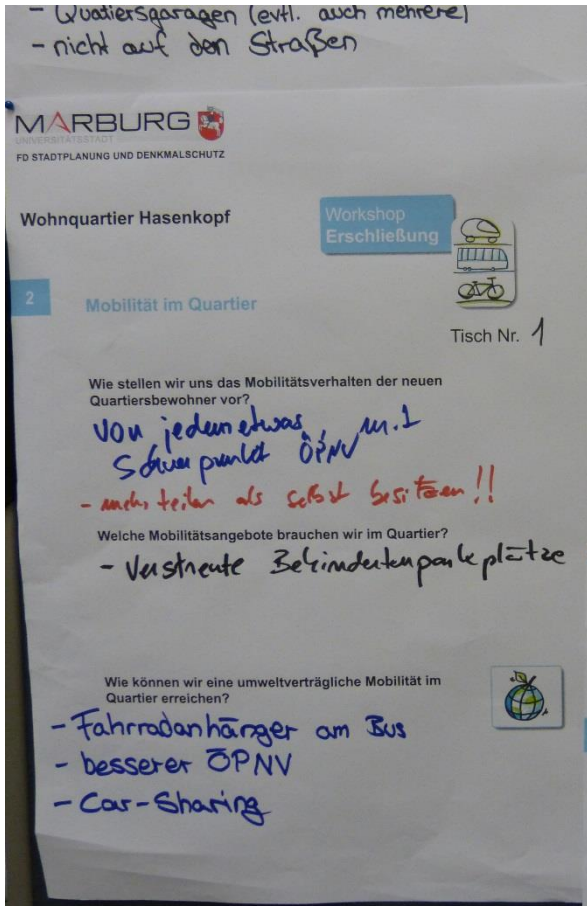 - Quatiersgaragen (evtl. auch mehrere)
- nicht auf den Straßen
MARBURG
UNIVERSITÄTSSTADT
FD STADTPLANUNG UND DENKMALSCHUTZ
Wohnquartier Hasenkopf
Workshop
Erschließung
2
Mobilität im Quartier
Tisch Nr. 1
Wie stellen wir uns das Mobilitätsverhalten der neuen
Quartiersbewohner vor?
Von jedem etwas, m.
Schwerpunkt ÖPNV
- mehr teilen als selbst besitzen!!
Welche Mobilitätsangebote brauchen wir im Quartier?
- Verstreute Behindertenparkplätze
Wie können wir eine umweltverträgliche Mobilität im
Quartier erreichen?
- Fahrradanhänger am Bus
- besserer ÖPNV
- Car-Sharing